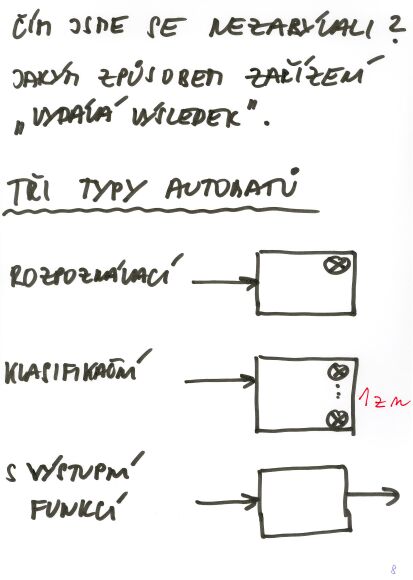 ČÍM JSME SE NEZABÝVALI?
JAKÝM ZPŮSOBEM ZAŘÍZENÍ
„VYDÁVÁ VÝSLEDEK".
TŘI TYPY AUTOMATŮ
ROZPOZNÁVACÍ
KLASIFIKAČNÍ
1 z n
S VÝSTUPNÍ
FUNKCÍ
8